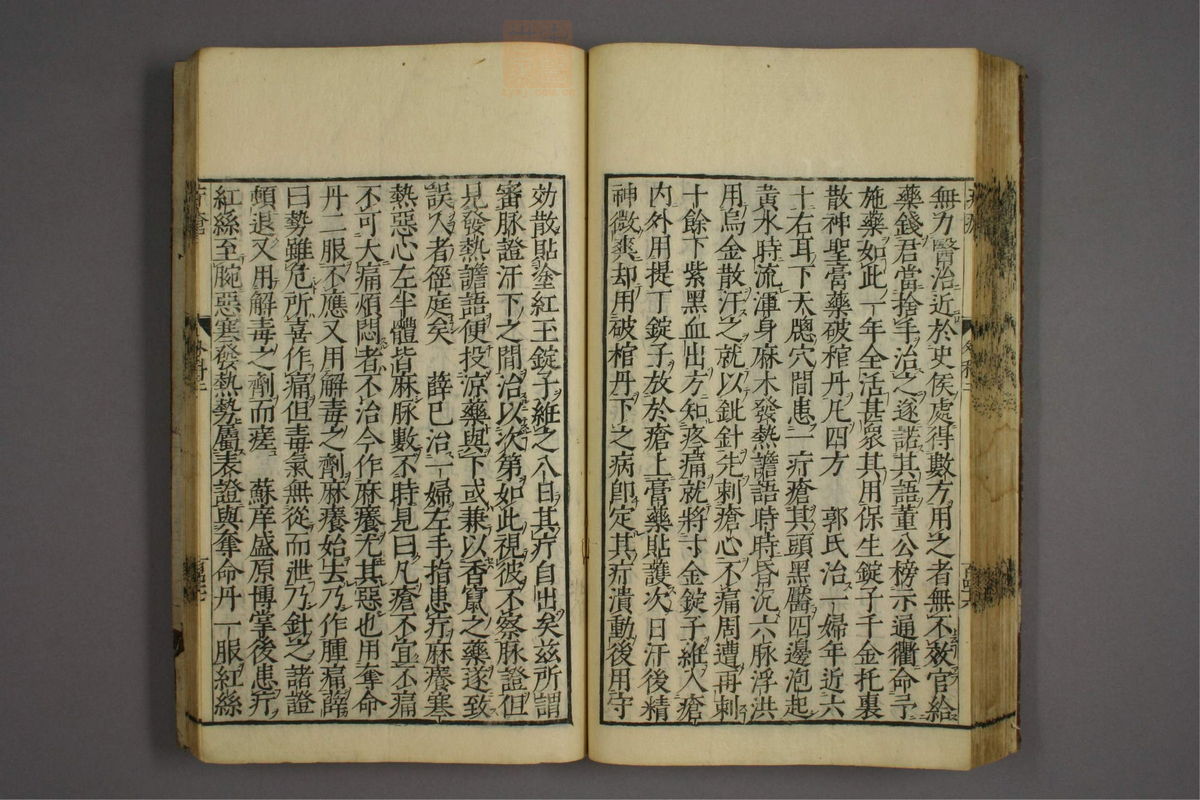 無力醫治近於史侯處得數方用之者無不效官給
藥錢君當捨手治之遂諾其語董公榜示通衢命予
施藥如此一年全活甚衆其用保生錠子千金托裏
散神聖膏藥破棺丹凡四方 郭氏治一婦年近六
十右耳下天牕穴間患一疔瘡其頭黑靨四邊泡起
黃水時流渾身麻木發熱譫語時時昏沉六脉浮洪
用烏金散汗之就以鈚針先刺瘡心不痛周遭再刺
十餘下紫黑血出方知疼痛就將寸金錠子維入瘡
內外用提丁錠子放於瘡上膏藥貼護次日汗後精
神微爽却用破棺丹下之病卽定其疔潰動後用守
効散貼塗紅王錠子維之八日其疔自出矣茲所謂
審脉證汗下之間治以次第如此視彼不察脉證但
見發熱譫語便投凉藥與下或兼以香竄之藥遂致
誤入者徑庭矣 薛已治一婦左手指患疔麻癢寒
熱惡心左半體皆麻脉數不時見曰凡瘡不宜不痛
不可大痛煩悶者不治今作麻癢尤其惡也用奪命
丹二服不應又用解毒之劑麻癢始去乃作腫痛薛
曰勢雖危所喜作痛但毒氣無從而泄乃針之諸證
頓退又用解毒之劑而瘥 蘇庠盛原博掌後患疔
紅絲至腕惡寒發熱勢屬表證與奪命丹一服紅絲
疔瘡
外科二